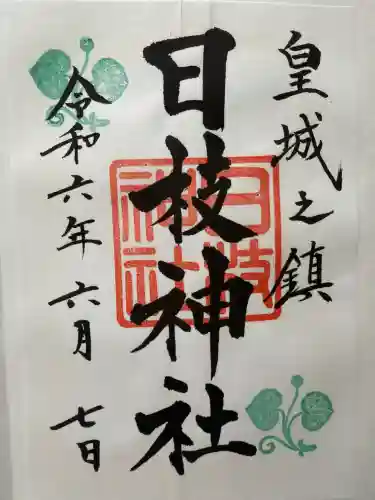 皇城之鎮
日枝神社
日枝神社
令和六年六月七日